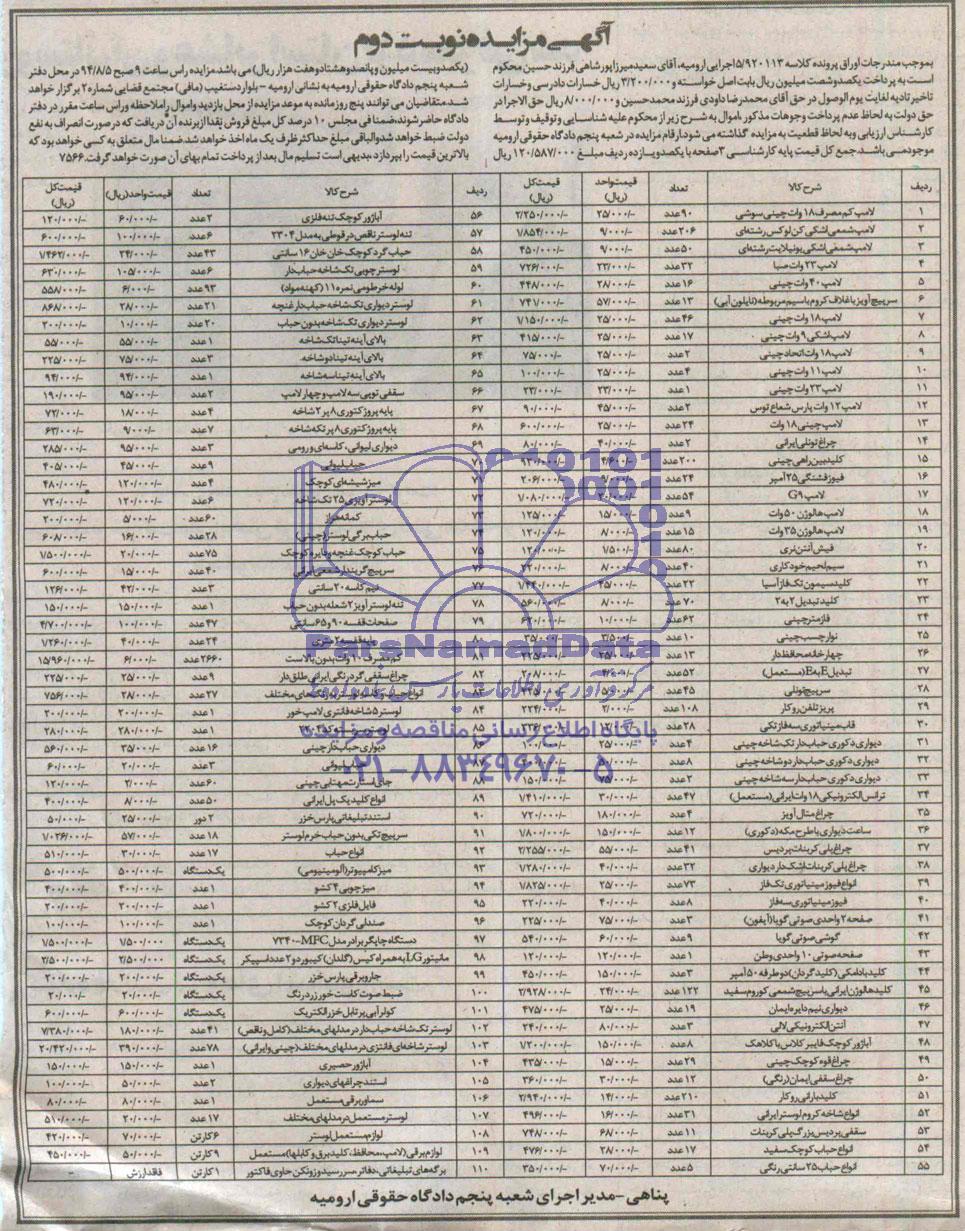 آگهی مزایده نوبت دوم
بموجب مندرجات اوراق پرونده کلاسه ۵/۹۲۰۱۱۳ اجرایی ارومیه، آقای سعید میرزاپور شاهی فرزند حسین محکوم
است به پرداخت یکصد و شصت میلیون ریال بابت اصل خواسته و ۳/۲۰۰/۰۰۰ ریال خسارات دادرسی و خسارات
تاخیر تادیه لغایت یوم الوصول در حق آقای محمدرضا داودی فرزند محمدحسین و ۸/۰۰۰/۰۰۰ ریال حق الاجرا در
حق دولت به لحاظ عدم پرداخت وجوهات مذکور، اموال به شرح زیر از محکوم علیه شناسایی و توقیف و توسط
کارشناس ارزیابی و به لحاظ قطعیت به مزایده گذاشته می شود ارقام مزایده در شعبه پنجم دادگاه حقوقی ارومیه
موجود می باشد. جمع کل قیمت پایه کارشناسی ۳ صفحه با یکصد و یازده ردیف مبلغ ۱۲۰/۵۸۷/۰۰۰ ریال
(یکصد و بیست میلیون و پانصد و هشتاد و هفت هزار ریال) می باشد. مزایده راس ساعت ۹ صبح ۹۴/۸/۵ در محل دفتر
شعبه پنجم دادگاه حقوقی ارومیه به نشانی ارومیه - بلوار دستغیب (مافی) مجتمع قضایی شماره ۲ برگزار خواهد
شد. متقاضیان می توانند پنج روز مانده به موعد مزایده از محل بازدید و اموال را ملاحظه و راس ساعت مقرر در دفتر
دادگاه حاضر شوند، ضمنا فی مجلس ۱۰ درصد کل مبلغ فروش نقدا از برنده آن دریافت که در صورت انصراف به نفع
دولت ضبط خواهد شد و الباقی مبلغ حداکثر ظرف یک ماه اخذ خواهد شد. ضمنا مال متعلق به کسی خواهد بود که
بالاترین قیمت را بپردازد. بدیهی است تسلیم مال بعد از پرداخت تمام بهای آن صورت خواهد گرفت. ۷۵۶۶
ردیف شرح کالا تعداد قیمت واحد (ریال) قیمت کل (ریال)
۱ لامپ کم مصرف ۱۸ وات چینی سوشی ۹۰ عدد ۲۵/۰۰۰/- ۲/۲۵۰/۰۰۰/-
۲ لامپ شمعی اشکی کن لوکس رشته‌ای ۲۰۶ عدد ۹/۰۰۰/- ۱/۸۵۴/۰۰۰/-
۳ لامپ شمعی اشکی یونیلایت رشته‌ای ۵۰ عدد ۹/۰۰۰/- ۴۵۰/۰۰۰/-
۴ لامپ ۲۳ وات صبا ۳۳ عدد ۲۲/۰۰۰/- ۷۲۶/۰۰۰/-
۵ لامپ ۴۰ وات چینی ۱۶ عدد ۲۸/۰۰۰/- ۴۴۸/۰۰۰/-
۶ سرپیچ آویز با غلاف کروم باسیم مربوطه (نایلون آبی) ۱۳ عدد ۵۷/۰۰۰/- ۷۴۱/۰۰۰/-
۷ لامپ ۱۸ وات چینی ۴۶ عدد ۲۵/۰۰۰/- ۱/۱۵۰/۰۰۰/-
۸ لامپ اشکی ۹ وات چینی ۱۷ عدد ۲۵/۰۰۰/- ۴۱۵/۰۰۰/-
۹ لامپ ۱۸ وات اتحاد چینی ۲ عدد ۲۵/۰۰۰/- ۷۵/۰۰۰/-
۱۰ لامپ ۱۱ وات چینی ۴ عدد ۲۵/۰۰۰/- ۱۰۰/۰۰۰/-
۱۱ لامپ ۲۳ وات چینی ۱ عدد ۲۳/۰۰۰/- ۲۳/۰۰۰/-
۱۲ لامپ ۱۲ وات پارس شعاع توس ۲ عدد ۴۵/۰۰۰/- ۹۰/۰۰۰/-
۱۳ لامپ چینی ۱۸ وات ۲۴ عدد ۲۵/۰۰۰/- ۶۰۰/۰۰۰/-
۱۴ چراغ تونلی ایرانی ۲ عدد ۴۰/۰۰۰/- ۸۰/۰۰۰/-
۱۵ کلید بین راهی چینی ۲۰۰ عدد
۱۶ فیوز فشنگی ۲۵ آمپر ۲۴ عدد
۱۷ لامپ G9 ۵۴ عدد ۲۰/۰۰۰/- ۱/۰۸۰/۰۰۰/-
۱۸ لامپ هالوژن ۵۰ وات ۹ عدد
۱۹ لامپ هالوژن ۳۵ وات ۱۵ عدد ۸/۰۰۰/- ۱۲۰/۰۰۰/-
۲۰ فیش آنتن نری ۸۰ عدد ۱/۵۰۰/- ۱۲۰/۰۰۰/-
۲۱ سیم لحیم خودکاری ۴۰ عدد ۸/۰۰۰/-
۲۲ کلید سیمون تک فاز آسیا
۲۳ کلید تبدیل ۲ به ۲ ۷۰ عدد ۸/۰۰۰/- ۵۶۰/۰۰۰/-
۲۴ فازمتر چینی ۶۲ عدد ۱۰/۰۰۰/- ۶۲۰/۰۰۰/-
۲۵ نوار چسب چینی ۱۰ عدد ۳/۵۰۰/- ۳۵/۰۰۰/-
۲۶ چهارخانه محافظ دار ۱۳ عدد
۲۷ تبدیل E به E (مستعمل) ۵۲ عدد ۴/۰۰۰/- ۲۰۸/۰۰۰/-
۲۸ سرپیچ تونلی ۴۵ عدد ۵/۰۰۰/- ۲۲۵/۰۰۰/-
۲۹ پریز تلفن روکار ۱۰۸ عدد
۳۰ قاب مینیاتوری سه فاز تکی ۲۸ عدد ۱۲/۰۰۰/- ۳۳۶/۰۰۰/-
۳۱ دیواری دکوری حبابدار تک شاخه چینی ۴ عدد ۲۵/۰۰۰/- ۱۰۰/۰۰۰/-
۳۲ دیواری دکوری حبابدار دو شاخه چینی ۸ عدد
۳۳ دیواری دکوری حبابدار سه شاخه چینی ۲ عدد ۷۵/۰۰۰/- ۱۵۰/۰۰۰/-
۳۴ ترانس الکترونیکی ۱۸ وات ایرانی (مستعمل) ۴۷ عدد ۳۰/۰۰۰/- ۱/۴۱۰/۰۰۰/-
۳۵ چراغ متال آویز ۴ عدد ۱۸۰/۰۰۰/- ۷۲۰/۰۰۰/-
۳۶ ساعت دیواری باطرح مکه (دکوری) ۱۲ عدد ۱۵۰/۰۰۰/- ۱/۸۰۰/۰۰۰/-
۳۷ چراغ پلی کربنات پردیس ۴۱ عدد ۵۵/۰۰۰/- ۲/۲۵۵/۰۰۰/-
۳۸ چراغ پلی کربنات اشک دار دیواری ۳۲ عدد ۴۰/۰۰۰/- ۱/۲۸۰/۰۰۰/-
۳۹ انواع فیوز مینیاتوری تک فاز ۷۳ عدد ۲۵/۰۰۰/- ۱/۸۲۵/۰۰۰/-
۴۰ فیوز مینیاتوری سه فاز ۸ عدد ۴۰/۰۰۰/- ۳۲۰/۰۰۰/-
۴۱ صفحه ۲ واحدی صوتی گویا (آیفون) ۳ عدد ۷۵/۰۰۰/- ۲۲۵/۰۰۰/-
۴۲ گوشی صوتی گویا ۹ عدد ۶۰/۰۰۰/- ۵۴۰/۰۰۰/-
۴۳ صفحه صوتی ۱۰ واحدی وطن ۱ عدد ۱۲۰/۰۰۰/- ۱۲۰/۰۰۰/-
۴۴ کلید بادامکی (کلید گردان) دو طرفه ۵۰ آمپر ۳ عدد ۱۵۰/۰۰۰/- ۴۵۰/۰۰۰/-
۴۵ کلید هالوژن ایرانی یا سرپیچ شمعی کوروم سفید ۱۲۲ عدد ۲۴/۰۰۰/- ۲/۹۲۸/۰۰۰/-
۴۶ دیواری نیم دایره ایمان ۱۹ عدد ۲۵/۰۰۰/- ۴۷۵/۰۰۰/-
۴۷ آنتن الکترونیکی لالی ۳ عدد ۸۰/۰۰۰/- ۲۴۰/۰۰۰/-
۴۸ آباژور کوچک فایبر کلاس با کلاهک ۸ عدد ۱۵۰/۰۰۰/- ۱/۲۰۰/۰۰۰/-
۴۹ چراغ قوه کوچک چینی ۲۹ عدد ۱۵/۰۰۰/- ۴۳۵/۰۰۰/-
۵۰ چراغ سقفی ایمان (رنگی) ۱۲ عدد ۳۰/۰۰۰/- ۳۶۰/۰۰۰/-
۵۱ کلید بارانی روکار ۲۱۰ عدد ۱۴/۰۰۰/- ۲/۹۴۰/۰۰۰/-
۵۲ انواع شاخه کروم لوستر ایرانی ۳۱ عدد ۱۶/۰۰۰/- ۴۹۶/۰۰۰/-
۵۳ سقفی پردیس بزرگ پلی کربنات ۱۱ عدد ۶۸/۰۰۰/- ۷۴۸/۰۰۰/-
۵۴ انواع حباب کوچک سفید ۱۷ عدد ۲۸/۰۰۰/- ۴۷۶/۰۰۰/-
۵۵ انواع حباب ۲۵ سانتی رنگی ۵ عدد ۷۰/۰۰۰/- ۳۵۰/۰۰۰/-
ردیف شرح کالا تعداد قیمت واحد (ریال) قیمت کل (ریال)
۵۶ آباژور کوچک تنه فلزی ۲ عدد ۶۰/۰۰۰/- ۱۲۰/۰۰۰/-
۵۷ تنه لوستر ناقص در قوطی به مدل ۲۳۰۴ ۶ عدد ۱۰۰/۰۰۰/- ۶۰۰/۰۰۰/-
۵۸ حباب گرد کوچک خان خان ۱۶ سانتی ۴۳ عدد ۳۴/۰۰۰/- ۱/۴۶۲/۰۰۰/-
۵۹ لوستر چوبی تک شاخه حبابدار ۶ عدد ۱۰۵/۰۰۰/- ۶۳۰/۰۰۰/-
۶۰ لوله خرطومی نمره ۱۱ (کهنه مواد) ۹۳ عدد ۶/۰۰۰/- ۵۵۸/۰۰۰/-
۶۱ لوستر دیواری تک شاخه حبابدار غنچه ۳۱ عدد ۲۸/۰۰۰/- ۸۶۸/۰۰۰/-
۶۲ لوستر دیواری تک شاخه بدون حباب ۲۰ عدد ۱۰/۰۰۰/- ۲۰۰/۰۰۰/-
۶۳ بالای آینه تیناتک شاخه ۱ عدد ۵۵/۰۰۰/- ۵۵/۰۰۰/-
۶۴ بالای آینه تینا دو شاخه ۳ عدد ۷۵/۰۰۰/- ۲۲۵/۰۰۰/-
۶۵ بالای آینه تینا سه شاخه ۱ عدد ۹۴/۰۰۰/- ۹۴/۰۰۰/-
۶۶ سقفی توپی سه لامپ و چهار لامپ ۲ عدد ۹۵/۰۰۰/- ۱۹۰/۰۰۰/-
۶۷ پایه پروژکتوری ۸ پر ۲ شاخه ۴ عدد ۱۸/۰۰۰/- ۷۲/۰۰۰/-
۶۸ پایه پروژکتوری ۸ پر تکه شاخه ۷ عدد ۹/۰۰۰/- ۶۳/۰۰۰/-
۶۹ دیواری لیوانی، کاسه‌ای و رومی ۳ عدد ۹۵/۰۰۰/- ۲۸۵/۰۰۰/-
۷۰ حباب لیوانی ۹ عدد ۴۵/۰۰۰/- ۴۰۵/۰۰۰/-
۷۱ میز شیشه‌ای کوچک ۴ عدد ۱۲۰/۰۰۰/- ۴۸۰/۰۰۰/-
۷۲ لوستر آویزی ۲۵ تک شاخه ۶ عدد ۱۲۰/۰۰۰/- ۷۲۰/۰۰۰/-
۷۳ کمانه هزار ۶۰ عدد ۵/۰۰۰/-
۷۴ حباب برگی لوستر (چینی) ۳۸ عدد ۱۶/۰۰۰/- ۶۰۸/۰۰۰/-
۷۵ حباب کوچک غنچه و دایره کوچک ۷۵ عدد ۲۰/۰۰۰/- ۱/۵۰۰/۰۰۰/-
۷۶ سرپیچ گریندار شمعی ایرانی ۴۰ عدد ۱۵/۰۰۰/- ۶۰۰/۰۰۰/-
۷۷ نیم کاسه ۲۰ سانتی ۳ عدد ۴۲/۰۰۰/- ۱۲۶/۰۰۰/-
۷۸ تنه لوستر آویز ۲ شعله بدون حباب ۱ عدد ۱۵۰/۰۰۰/- ۱۵۰/۰۰۰/-
۷۹ صفحات قفسه ۹۰ و ۶۵ سانتی ۴۷ عدد ۱۰۰/۰۰۰/- ۴/۷۰۰/۰۰۰/-
۸۰ پایه قفسه ۲ متری ۴۰/۰۰۰/- ۱/۲۶۰/۰۰۰/-
۸۱ کم مصرف ۱۰ وات بدون بالاست ۲۶۶۰ عدد ۶/۰۰۰/- ۱۵/۹۶۰/۰۰۰/-
۸۲ چراغ سقفی گرد رنگی ایرانی طلق دار ۹ عدد ۲۵/۰۰۰/- ۲۲۵/۰۰۰/-
۸۳ ۲۷ عدد ۲۸/۰۰۰/- ۷۵۶/۰۰۰/-
۸۴ لوستر ۵ شاخه فانتزی لامپ خور ۱ عدد ۲۰۰/۰۰۰/- ۲۰۰/۰۰۰/-
۸۵ ۱ عدد ۲۸۰/۰۰۰/- ۲۸۰/۰۰۰/-
۸۶ دیواری حبابدار چینی ۱۶ عدد ۳۵/۰۰۰/- ۵۶۰/۰۰۰/-
۸۷ ۳ عدد ۲۰/۰۰۰/- ۶۰/۰۰۰/-
۸۸ جای استارت مهتابی چینی ۶۰ عدد ۲/۰۰۰/- ۱۲۰/۰۰۰/-
۸۹ انواع کلید یک پل ایرانی ۵۰ عدد ۸/۰۰۰/- ۴۰۰/۰۰۰/-
۹۰ استند تبلیغاتی پارس خزر ۲ دور ۲۵/۰۰۰/- ۵۰/۰۰۰/-
۹۱ سرپیچ تکی بدون حباب خرم لوستر ۱۸ عدد ۵۷/۰۰۰/- ۱/۰۲۶/۰۰۰/-
۹۲ انواع حباب ۱۷ عدد ۳۰/۰۰۰/- ۵۱۰/۰۰۰/-
۹۳ میز کامپیوتر (آلومینیومی) یک دستگاه ۵۰۰/۰۰۰/- ۵۰۰/۰۰۰/-
۹۴ میز چوبی ۴ کشو ۱ عدد ۴۰۰/۰۰۰/- ۴۰۰/۰۰۰/-
۹۵ فایل فلزی ۲ کشو ۱ عدد ۲۰۰/۰۰۰/- ۲۰۰/۰۰۰/-
۹۶ صندلی گردان کوچک ۱ عدد ۱۰۰/۰۰۰/- ۱۰۰/۰۰۰/-
۹۷ دستگاه چاپگر برادر مدل MFC-۷۳۴۰ یک دستگاه ۱/۵۰۰/۰۰۰ ۱/۵۰۰/۰۰۰/-
۹۸ مانیتور LG به همراه کیس (گلدان) کیبورد و ۲ عدد اسپیکر یک دستگاه ۲/۵۰۰/۰۰۰ ۲/۵۰۰/۰۰۰/-
۹۹ جاروبرقی پارس خزر یک دستگاه ۲۰۰/۰۰۰/- ۲۰۰/۰۰۰/-
۱۰۰ ضبط صوت کاست خور زرد رنگ یک دستگاه ۲۰/۰۰۰/- ۲۰/۰۰۰/-
۱۰۱ کولر آبی پرتابل خزر الکتریک یک دستگاه ۶۰۰/۰۰۰/- ۶۰۰/۰۰۰/-
۱۰۲ لوستر تک شاخه حبابدار در مدلهای مختلف (کامل و ناقص) ۴۱ عدد ۱۸۰/۰۰۰/- ۷/۳۸۰/۰۰۰/-
۱۰۳ لوستر شاخه‌ای فانتزی در مدلهای مختلف (چینی و ایرانی) ۷۸ عدد ۳۹۰/۰۰۰/- ۳۰/۴۲۰/۰۰۰/-
۱۰۴ آباژور حصیری ۱ عدد ۱۵۰/۰۰۰/- ۱۵۰/۰۰۰/-
۱۰۵ استند چراغهای دیواری ۲ عدد ۵۰/۰۰۰/- ۱۰۰/۰۰۰/-
۱۰۶ سماور برقی مستعمل ۱ عدد ۸۰/۰۰۰/- ۸۰/۰۰۰/-
۱۰۷ لوستر مستعمل در مدلهای مختلف ۱۷ عدد ۳۰/۰۰۰/- ۵۱۰/۰۰۰/-
۱۰۸ لوازم مستعمل لوستر ۶ کارتن ۷۰/۰۰۰/- ۴۲۰/۰۰۰/-
۱۰۹ لوازم برقی (لامپ، محافظ، کلید برق و کابلها) مستعمل ۹ کارتن ۵۰/۰۰۰/- ۴۵۰/۰۰۰/-
۱۱۰ برگه‌های تبلیغاتی، دفاتر سررسید و زونکن حاوی فاکتور ۱ کارتن فاقد ارزش -
ParsNamadData
پایگاه اطلاع رسانی مناقصه و مزایده
۰۲۱-۸۸۳۴۹۶۷۰-۵
پناهی - مدیر اجرای شعبه پنجم دادگاه حقوقی ارومیه